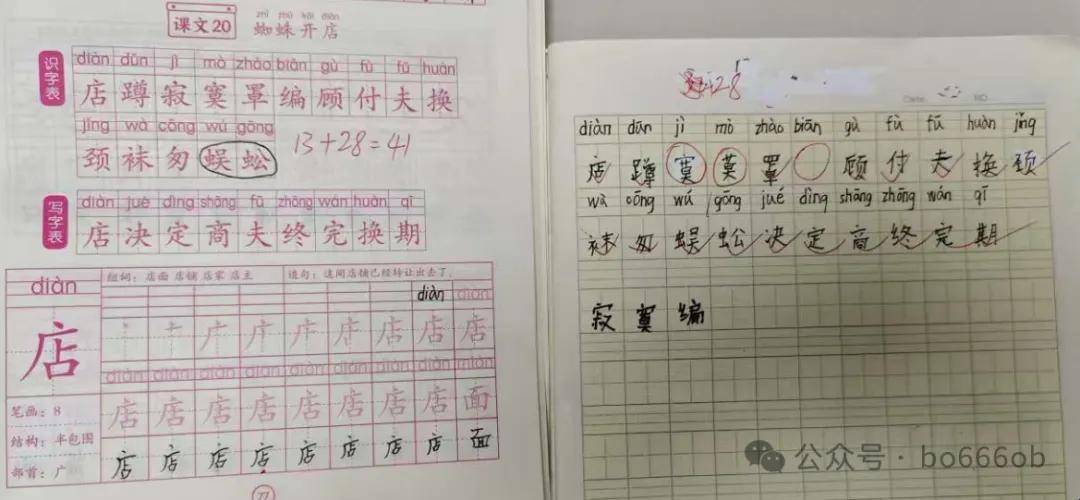 zhī zhū kāi diàn
课文20 蜘蛛开店
识字表
diàn dūn jì mò zhào biān gù fù fū huàn
店 蹲 寂 寞 罩 编 顾 付 夫 换
jǐng wà cōng wú gōng
颈 袜 匆 蜈 蚣 13+28=41
写字表
diàn jué dìng shāng fū zhōng wán huàn qī
店 决 定 商 夫 终 完 换 期
diàn
组词:店面 店铺 店家 店主 造句:这间店铺已经转让出去了。
diàn diàn
店
店 店
diàn diàn diàn diàn diàn diàn diàn miàn
店 店 店 店 店 店 店 面
笔画:8
结构:半包围
部首:广
店 店 店 店 店 店 店 面
77
+28
Date NO
diàn dūn jì mò zhào biān gù fù fū huàn jǐng
店 蹲 寞 莫 罩 顾 付 夫 换 颈
wà cōng wú gōng jué dìng shāng zhōng wán qī
袜 匆 蜈 蚣 决 定 商 终 完 期
寂 寞 编
公众号·bo666ob